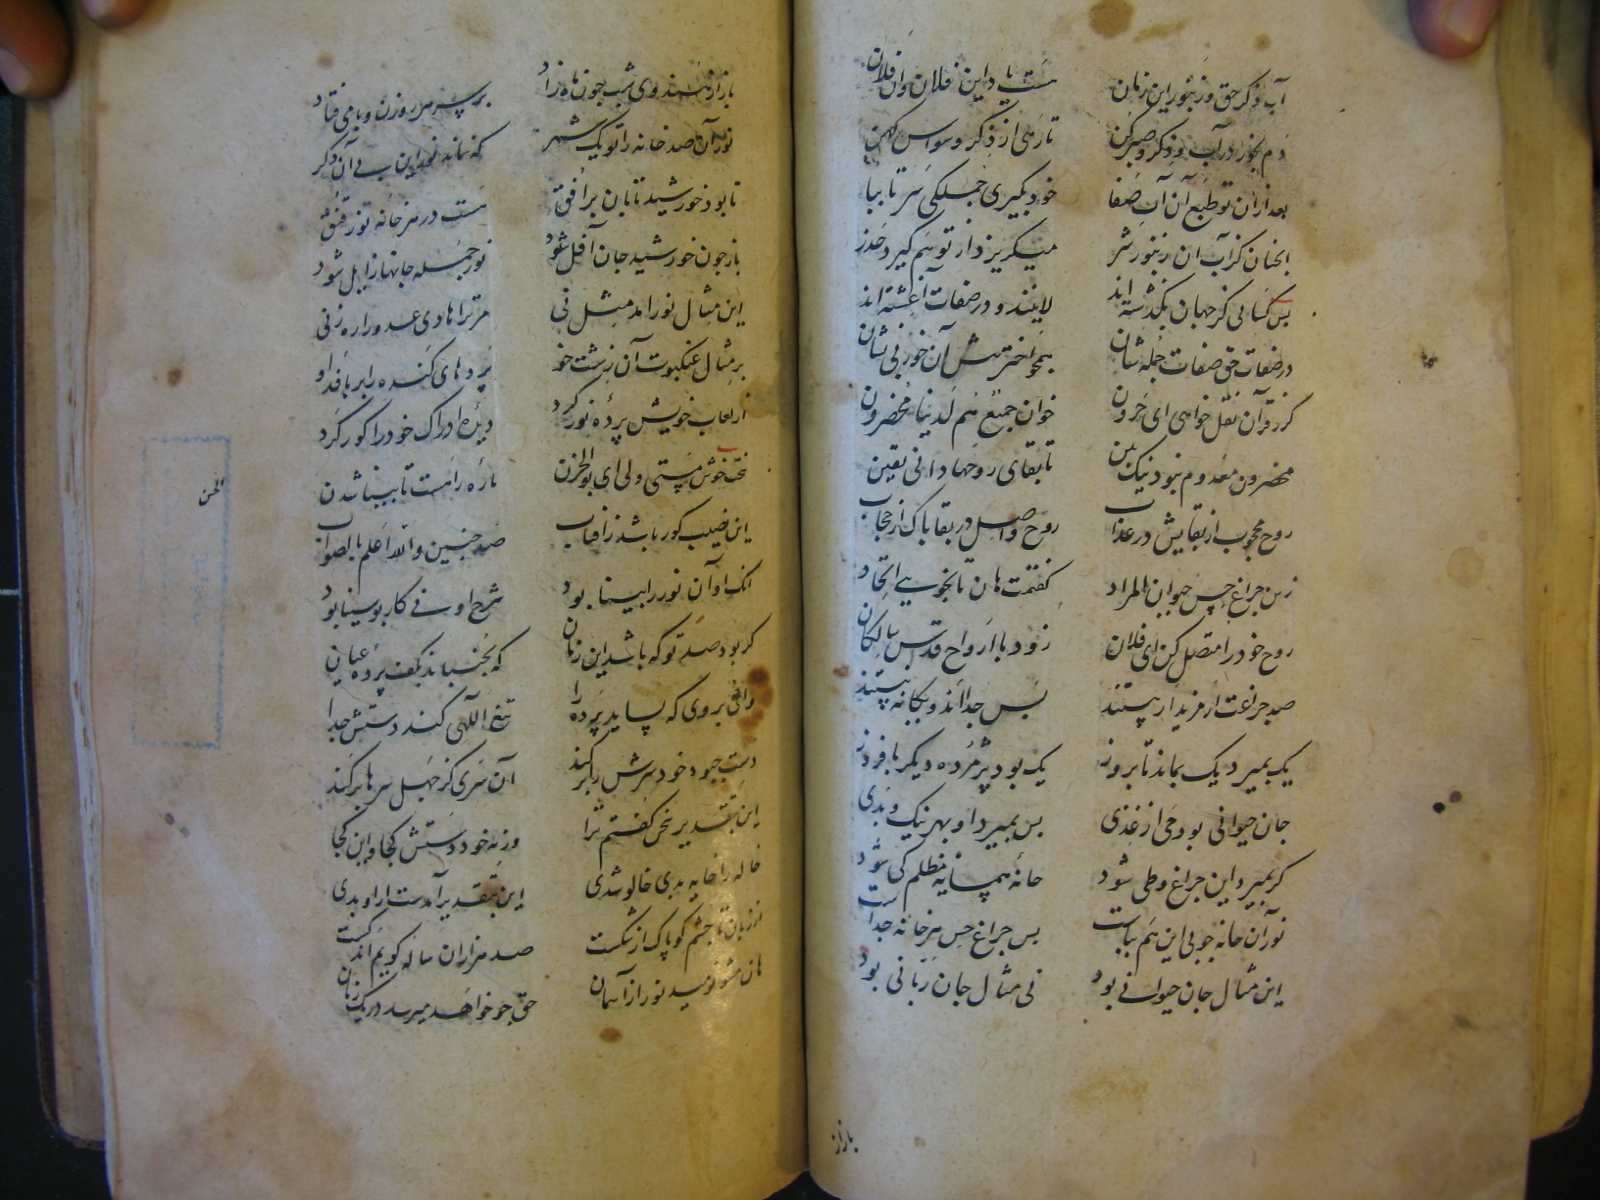 آب ذکر حق و زنبور این زمان هست یاد این فلان وان فلان
دم بخور در آب ذکر و صبر کن تا رهی از ذکر وسواس کهن
بعد ازان تو طبع آن آب صفا خود بگیری جملگی سر تا بپا
انچنان کز آب آن زنبور شر میگریزد از تو هم گیرد حذر
بس کسانی کز جهان بگذشته اند لا نیند و در صفات آغشته اند
در صفات حق صفات جمله شان همچو اختر پیش آن خور بی نشان
گر ز قرآن نقل خواهی ای حرون خوان جمیع هم لدینا محضرون
محضرون معدوم نبود نیک بین تا بقای روحها دانی یقین
روح محجوب از بقایش در عذاب روح واصل در بقا پاک از حجاب
زین چراغ حس حیوان المراد گفتمت هان تا نجویی اتحاد
روح خود را متصل کن ای فلان زود با ارواح قدس سالکان
صد چراغت ار مرند ار بیستند بس جدا اند و یگانه نیستند
یک بمیرد یک بماند تا بروز یک بود پژمرده دیگر با فروز
جان حیوانی بود حی از غذی بس بمیرد او بهر نیک و بدی
گر بمیرد این چراغ و طی شود خانه همسایه مظلم کی شود
نور آن خانه چو بی این هم بپاست بس چراغ حس هر خانه جداست
این مثال جان حیوانی بود نی مثال جان ربانی بود
باز از
باز از هندوی شب چون ماه زاد بر سر هر روزن و بامی فتاد
نور آن صد خانه را تو یک شمر که نماند نور این بی آن دگر
تا بود خورشید تابان بر افق هست در هر خانه نور قنق
باز چون خورشید جان آفل شود نور جمله جانها زایل شود
این مثال نور آمد مثل نی مر ترا هادی عدو را ره زنی
بر مثال عنکبوت آن زشت خو پردهای گنده را بر بافد او
از لعاب خویش پرده نور کرد دیده ادراک خود را کور کرد
این نصیب کور باشد ز افتاب صد چنین والله اعلم بالصواب
انک او آن نور را بینا بود شرح او نی کار بوسینا بود
گر بود صد تو که باشد این زبان که بجنباند بکف پرده عیان
وای بر وی که بساید پرده را تیغ اللهی کند دستش جدا
دست چبود خود سرش را بر کند آن سری کز جهل سرها بر کند
این بتقدیر سخن گفتم ترا ور نه خود دستش کجا و این کجا
خاله را خایه بدی خالو شدی این بتقدیر آمدست ار او بدی
از زبان تا چشم کو پاک از شکست صد هزاران ساله گویم اندکست
هان مشو نومید نور از آسمان حق چو خواهد میرسد در یک زمان